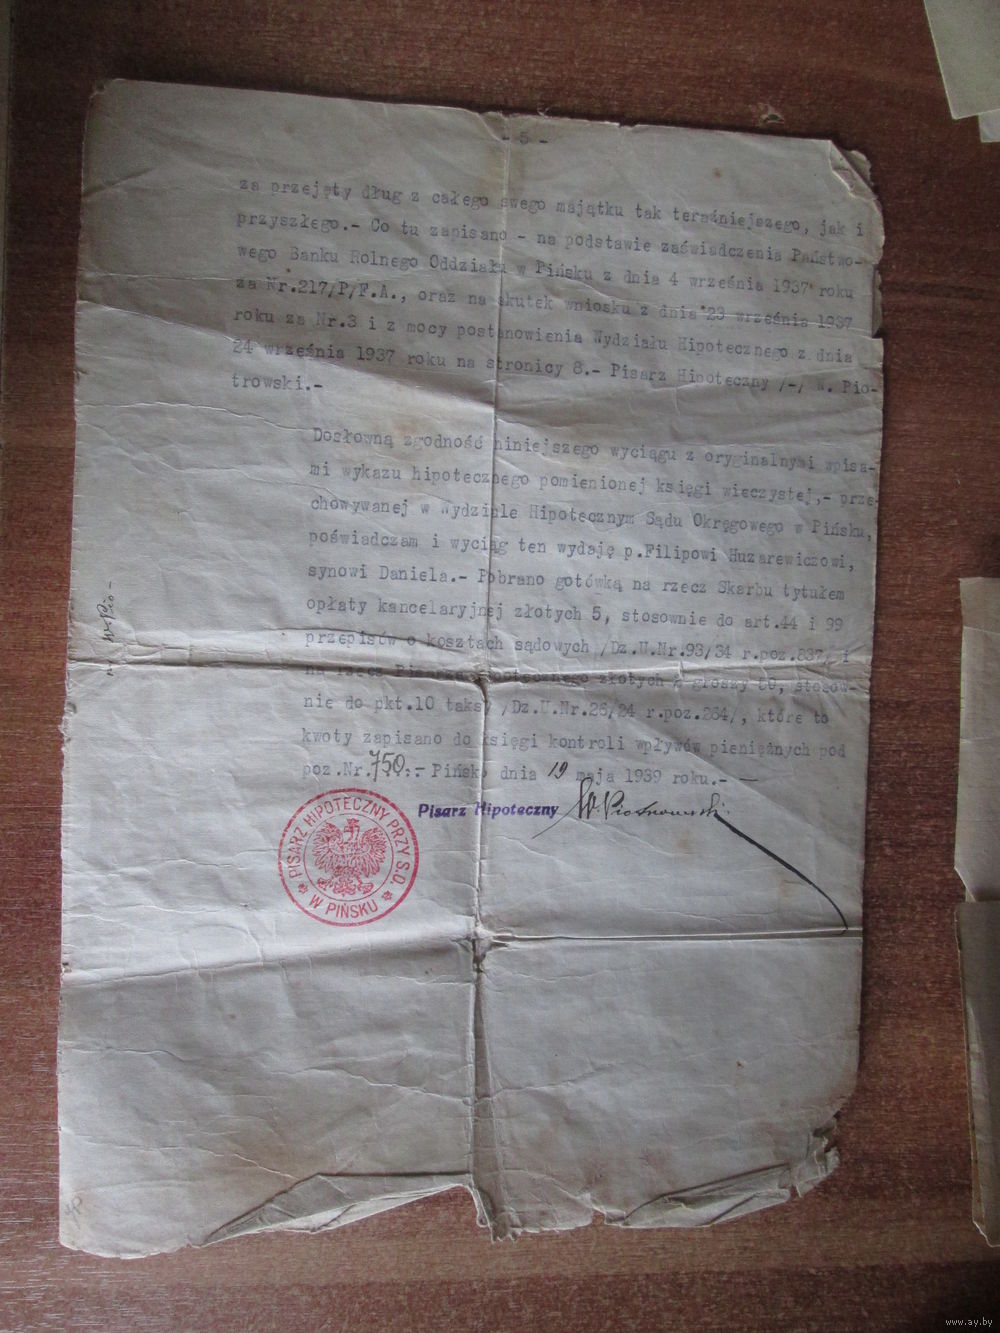 - 5 -
za przejęty dług z całego swego majątku tak teraźniejszego, jak i
przyszłego.- Co tu zapisano - na podstawie zaświadczenia Państwo-
wego Banku Rolnego Oddziału w Pińsku z dnia 4 września 1937 roku
za Nr.217/P/F.A., oraz na skutek wniosku z dnia 23 września 1937
roku za Nr.3 i z mocy postanowienia Wydziału Hipotecznego z dnia
24 września 1937 roku na stronicy 8.- Pisarz Hipoteczny /-/ W. Pio-
trowski.-
Dosłowną zgodność niniejszego wyciągu z oryginalnymi wpisa-
mi wykazu hipotecznego pomienionej księgi wieczystej,- prze
chowywanej w Wydziale Hipotecznym Sądu Okręgowego w Pińsku,
poświadczam i wyciąg ten wydaję p.Filipowi Huzarewiczowi,
synowi Daniela.- Pobrano gotówką na rzecz Skarbu tytułem
opłaty kancelaryjnej złotych 5, stosownie do art.44 i 99
przepisów o kosztach sądowych /Dz.U.Nr.93/34 r.poz.837/ i
na rzecz Pisarza Hipotecznego złotych groszy 50, stosow-
nie do pkt.10 taksy /Dz.U.Nr.26/24 r.poz.264/, które to
kwoty zapisano do księgi kontroli wpływów pieniężnych pod
poz.Nr.750.- Pińsk, dnia 19 maja 1939 roku.- -
Pisarz Hipoteczny W. Piotrowski
PISARZ HIPOTECZNY PRZY S.O.
W PIŃSKU
W. Pio-
www.ay.by